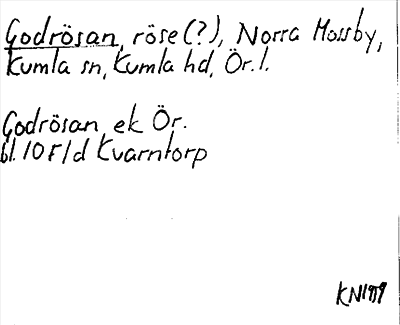 Godrösan, röse(?), Norra Mossby,
Kumla sn, Kumla hd, Ör. l.
Godrösan ek Ör.
bl. 10 F/d Kvarntorp